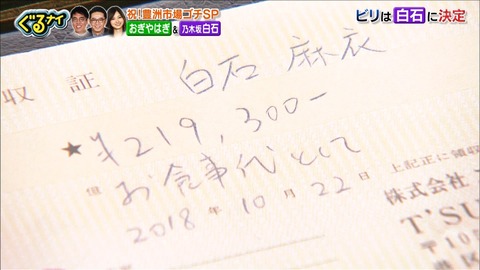 ぐるナイ
祝!豊洲市場ゴチSP
おぎやはぎ&乃木坂白石
ビリは白石に決定
収証
白石 麻衣
★¥219,300-
但 お食事代として
2018年10月22日
上記正に領収
株式会社
T'SU
〒10
港区